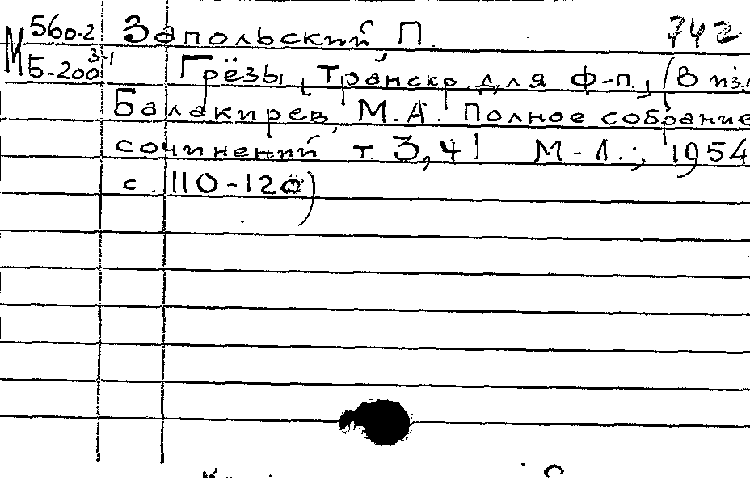 М 560-2 Запольский, П. 742
Б-200 3-1 Грёзы, транскр. для ф-п., (В изд.
Балакирев, М.А. Полное собрание
сочинений т 3, ч 1 М-Л.; 1954
с. 110-120)